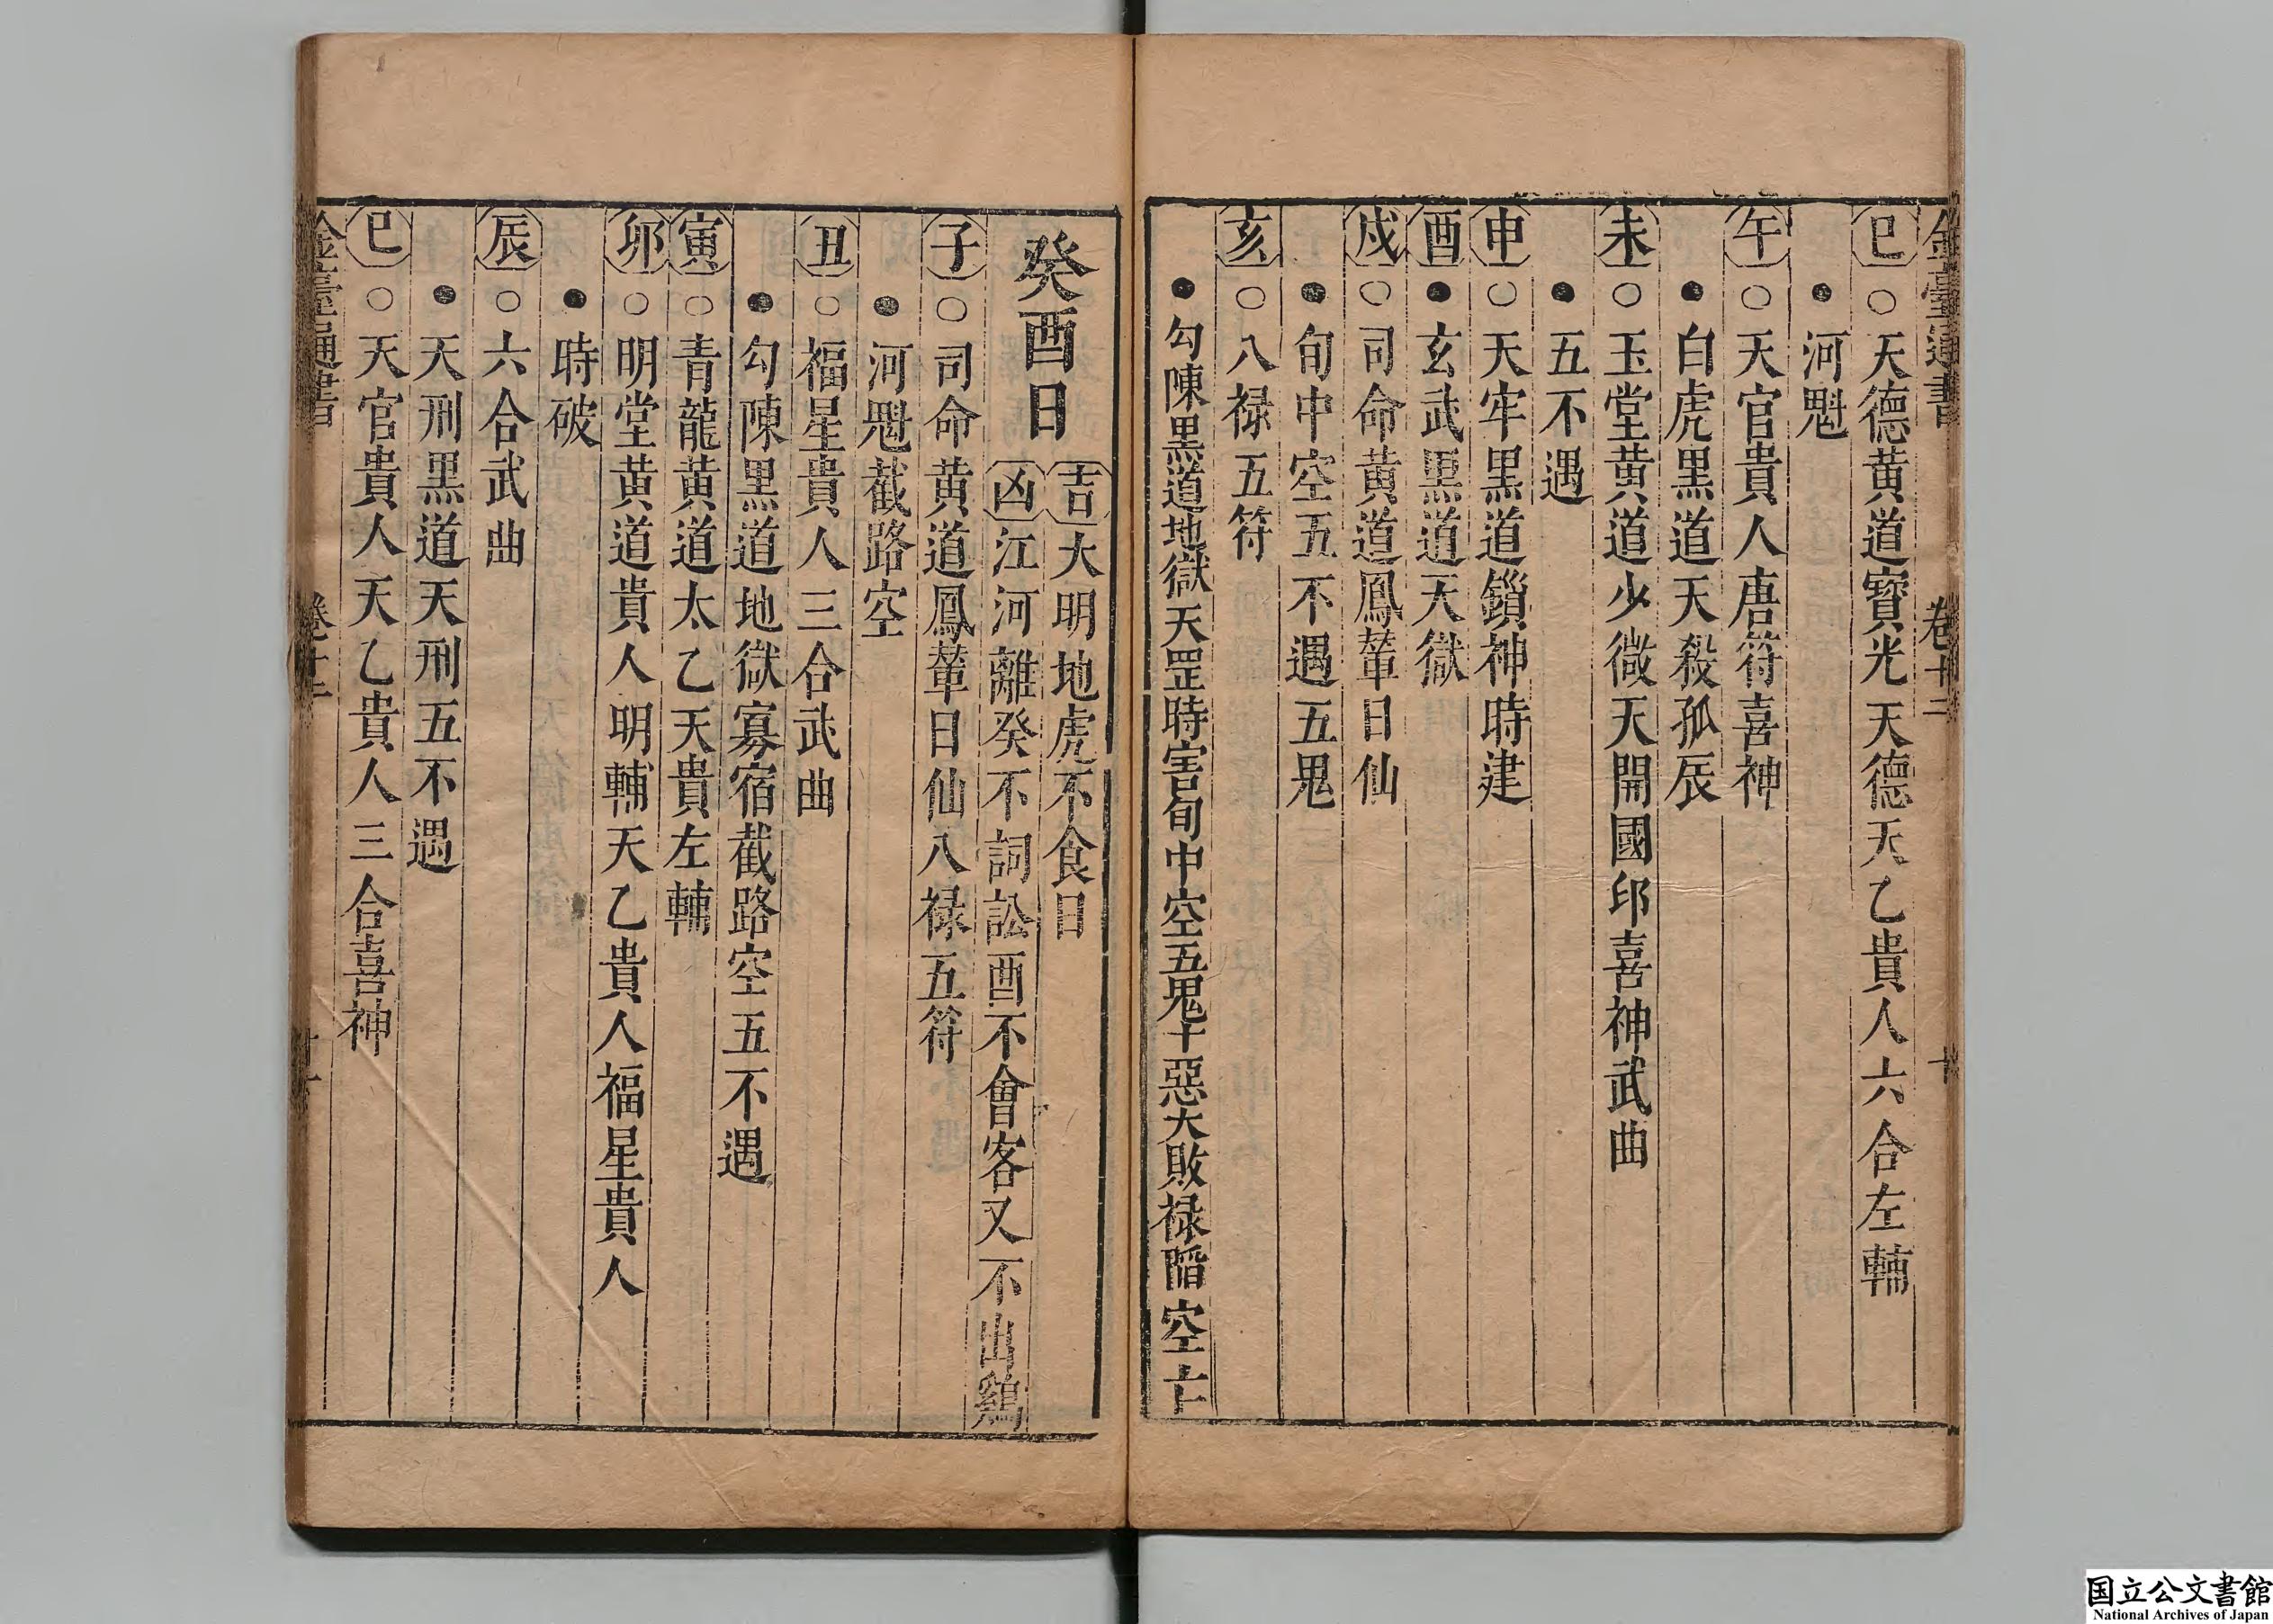 金臺通書 卷十二 十
巳○天德黄道寳光天德天乙貴人六合左輔
●河魁
午○天官貴人唐符喜神
●白虎黒道天殺孤辰
未○玉堂黄道少微天開國印喜神武曲
●五不遇
申○天牢黒道鎖神時建
酉●玄武黒道天獄
戍○司命黄道鳳輦日仙
●旬中空五不遇五鬼
亥○八禄五符
●勾陳黒道地獄天罡時害旬中空五鬼十惡大敗禄陷空亡
癸酉日
吉大明地虎不食日
凶江河離癸不詞訟酉不會客又不出鷄
子○司命黄道鳳輦日仙八禄五符
●河魁截路空
丑○福星貴人三合武曲
●勾陳黒道地獄寡宿截路空五不遇
寅○青龍黄道太乙天貴左輔
卯○明堂黄道貴人明輔天乙貴人福星貴人
●時破
辰○六合武曲
●天刑黒道天刑五不遇
巳○天官貴人天乙貴人三合喜神
金臺通書 卷十二
国立公文書館
National Archives of Japan